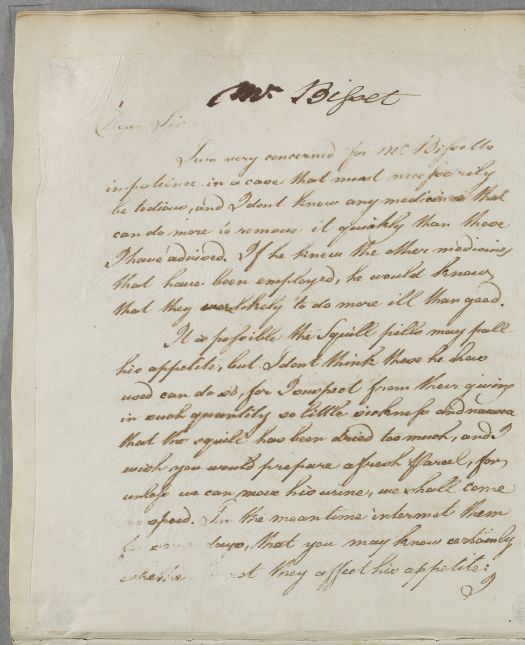 Mr. Bisset
Dear Sir
I am very concerned for Mr. Bissetts
impatience in a case that must necessarily
be tedious, and I dont know any medicine that
can do more to remove it quickly than those
I have advised. If he knew the other medicines
that have been employed, he would know
that they likely to do more ill than good.
It is possible the Squill pills may pall
his appetite, but I dont think those he has
used can do so, for I suspect from their giving
in such quantity so little sickness and nausea
that the squill has been dried too much, and I
wish you would prepare a fresh Parcel, for,
unless we can move his urine, we shall come
no speed. In the meantime intermit them
for some days, that you may know certainly
they affect his appetite: